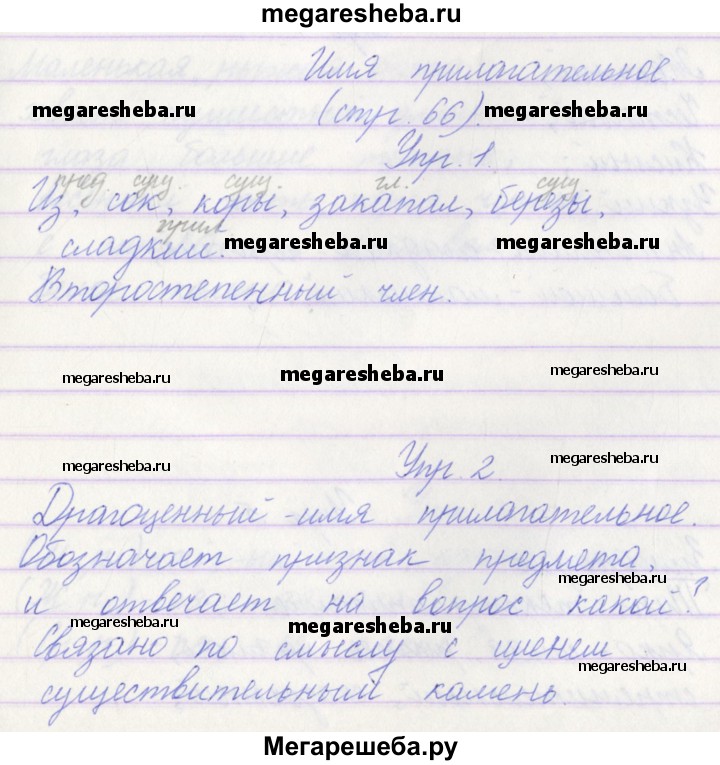 megaresheba.ru
Имя прилагательное.
megaresheba.ru (стр. 66). megaresheba.ru
Упр. 1.
пред. сущ. сущ. гл. сущ.
Из, сок, коры, закапал, берёзы,
прил.
сладкий. megaresheba.ru megaresheba.ru
Второстепенный член.
megaresheba.ru megaresheba.ru megaresheba.ru
Упр. 2.
megaresheba.ru megaresheba.ru
Драгоценный - имя прилагательное.
Обозначает признак предмета,
megaresheba.ru
и отвечает на вопрос какой?
megaresheba.ru megaresheba.ru
Связано по смыслу с именем
megaresheba.ru
существительным камень.
Мегарешеба.ру